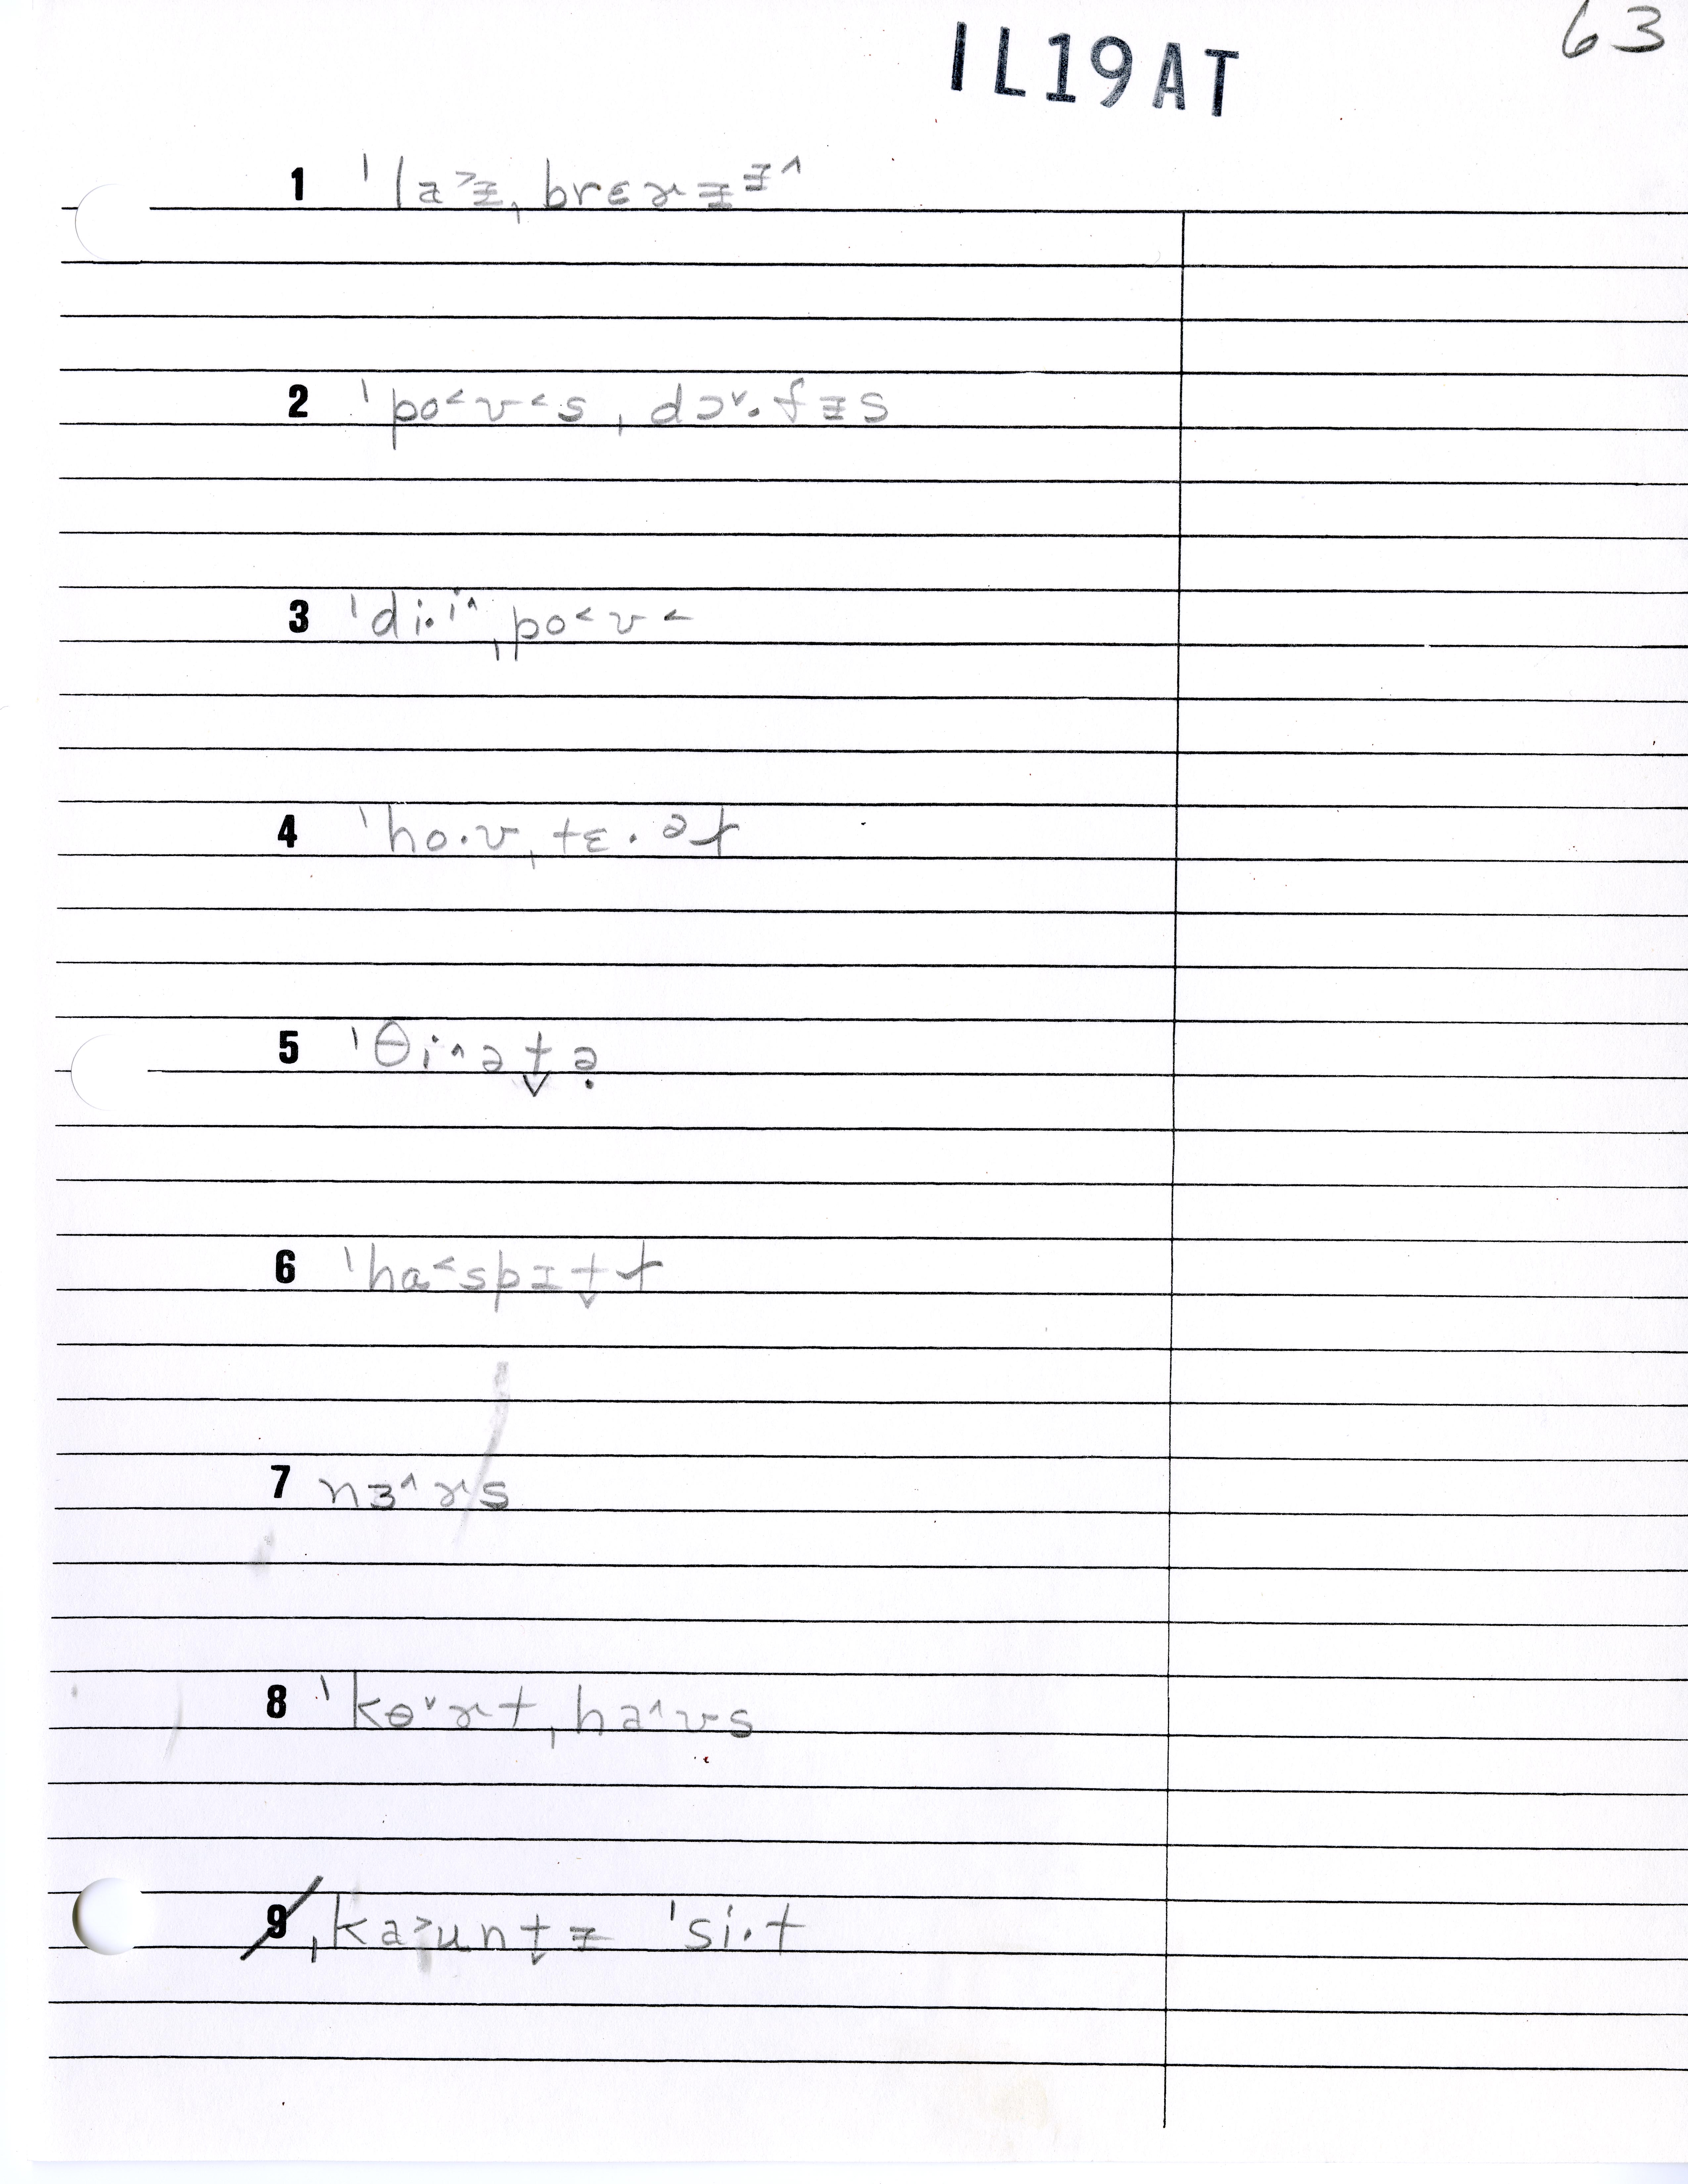 63
IL19AT
1 ˈlaᵻ˃ᵻˌbrɛɚᵻᵻ^
2 ˈpo˂ʊ˂sˌdɔ˅·fᵻs
3 ˈdi·i^ˌpo˂ʊ˂
4 ˈho·ʊˌtɛ·əɫ
5 ˈθi^ət̬ə̣
6 ˈhɑ˂spɪt̬ɫ
7 nɜ^ɚs
8 ˈkɵ˅ɚtˌha^ʊs
9 ˌka˃unt̬ᵻ ˈsi·t